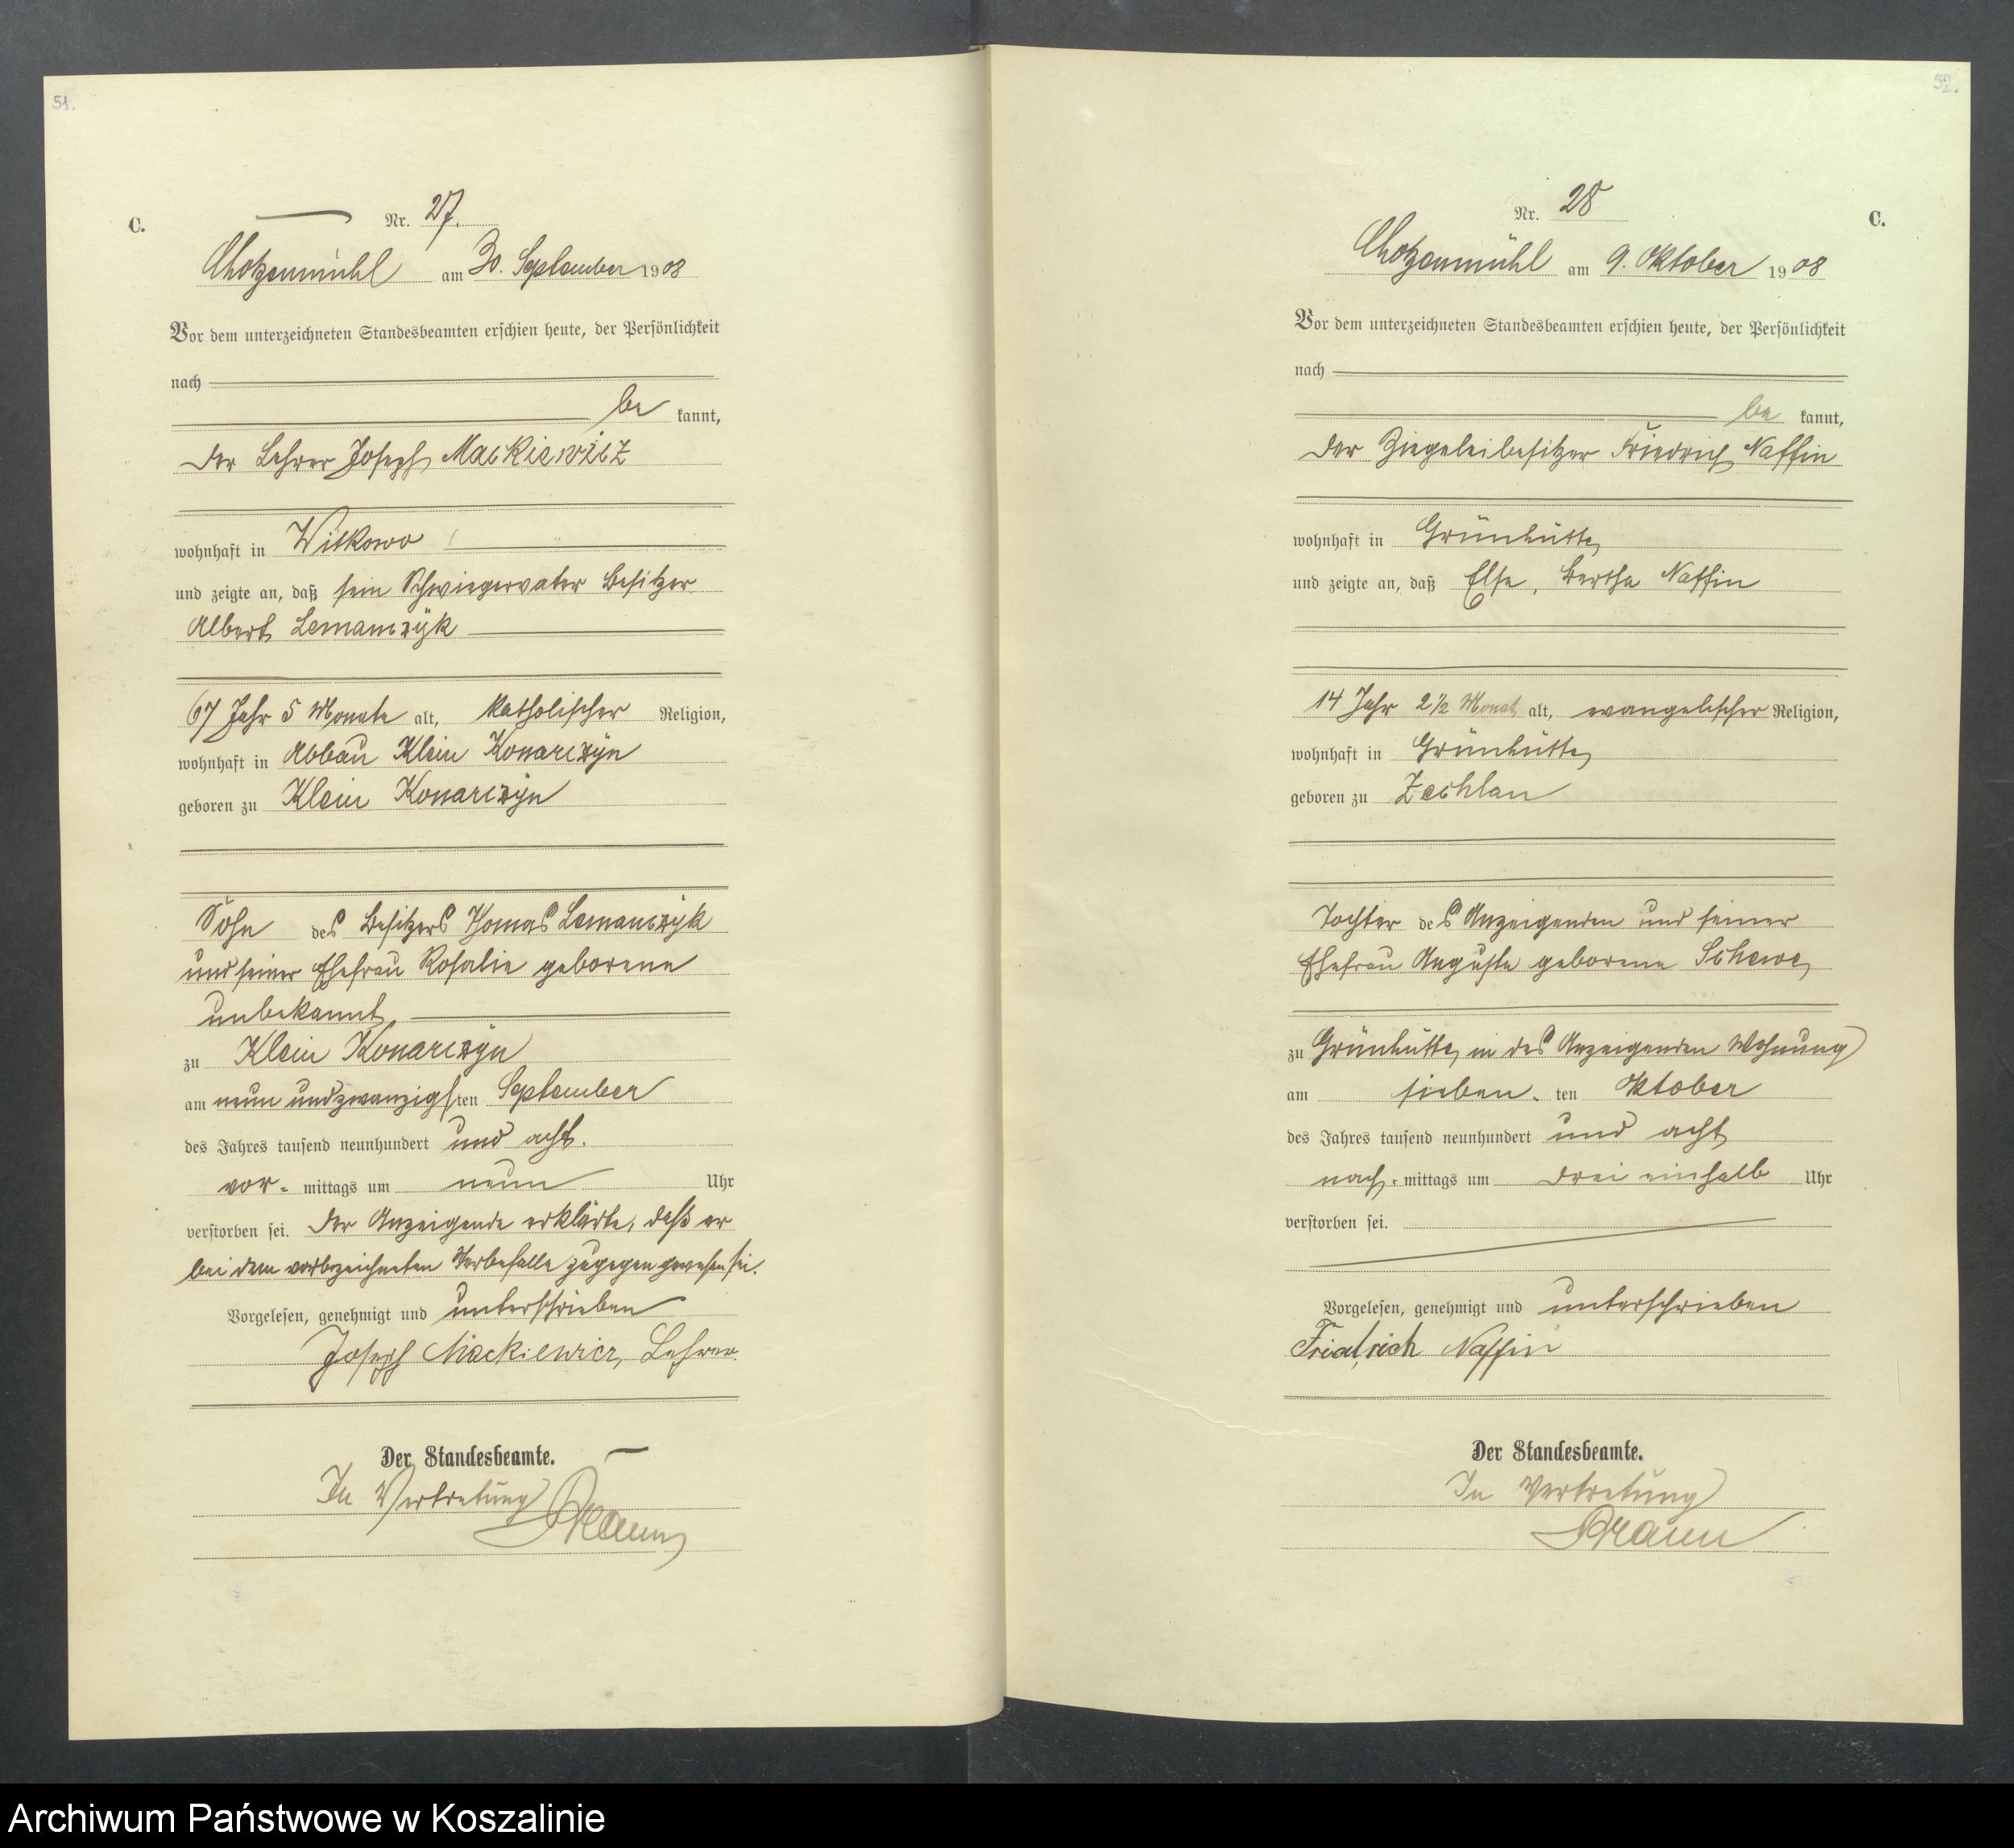 51.
C.
Nr. 27.
Chotzenmühl am 30. September 1908
Vor dem unterzeichneten Standesbeamten erschien heute, der Persönlichkeit
nach
be kannt,
der Lehrer Joseph Mackiewicz
wohnhaft in Witkowo
und zeigte an, daß sein Schwiegervater Besitzer
Albert Lemanczyk
67 Jahr 5 Monate alt, katholischer Religion,
wohnhaft in Abbau Klein Konarczyn
geboren zu Klein Konarczyn
Sohn des Besitzers Thomas Lemanczyk
und seiner Ehefrau Rosalie geborene
unbekannt,
zu Klein Konarczyn
am neun und zwanzigsten September
des Jahres tausend neunhundert und acht.
vor- mittags um neun Uhr
verstorben sei. Der Anzeigende erklärte, daß er
bei dem vorbezeichneten Sterbefalle zugegen gewesen sei.
Vorgelesen, genehmigt und unterschrieben
Joseph Mackiewicz, Lehrer.
Der Standesbeamte.
In Vertretung
Braun
52.
C.
Nr. 28
Chotzenmühl am 9. Oktober 1908
Vor dem unterzeichneten Standesbeamten erschien heute, der Persönlichkeit
nach
be kannt,
der Ziegeleibesitzer Friedrich Naffin
wohnhaft in Grünhütte
und zeigte an, daß Else, Bertha Naffin
14 Jahr 2 1/2 Monat alt, evangelischer Religion,
wohnhaft in Grünhütte
geboren zu Zechlau
Tochter des Anzeigenden und seiner
Ehefrau Auguste geborene Schewe
zu Grünhütte, in des Anzeigenden Wohnung
am sieben- ten Oktober
des Jahres tausend neunhundert und acht
nach- mittags um drei einhalb Uhr
verstorben sei.
Vorgelesen, genehmigt und unterschrieben
Friedrich Naffin
Der Standesbeamte.
In Vertretung
Braun
Archiwum Państwowe w Koszalinie